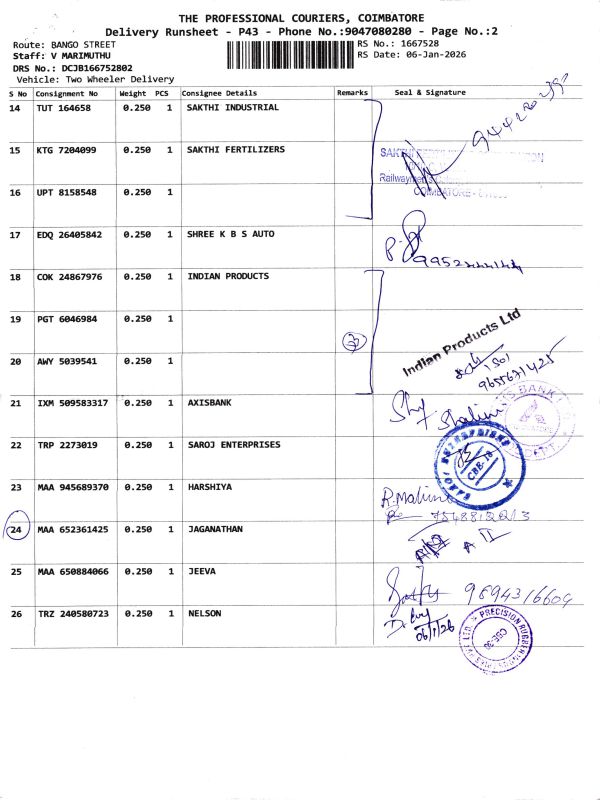 THE PROFESSIONAL COURIERS, COIMBATORE
Delivery Runsheet - P43 - Phone No.:9047080280 - Page No.:2
Route: BANGO STREET RS No.: 1667528
Staff: V MARIMUTHU RS Date: 06-Jan-2026
DRS No.: DCJB166752802
Vehicle: Two Wheeler Delivery
S No Consignment No Weight PCS Consignee Details Remarks Seal & Signature
14 TUT 164658 0.250 1 SAKTHI INDUSTRIAL
15 KTG 7204099 0.250 1 SAKTHI FERTILIZERS
COIMBATORE
16 UPT 8158548 0.250 1
17 EDQ 26405842 0.250 1 SHREE K B S AUTO
18 COK 24867976 0.250 1 INDIAN PRODUCTS
19 PGT 6046984 0.250 1
Indian Products Ltd
20 AWY 5039541 0.250 1
1501
9655671425
21 IXM 509583317 0.250 1 AXISBANK
Shalini
22 TRP 2273019 0.250 1 SAROJ ENTERPRISES
CBE-18
23 MAA 945689370 0.250 1 HARSHIYA
7548812213
24 MAA 652361425 0.250 1 JAGANATHAN
25 MAA 650884066 0.250 1 JEEVA
9694316604
26 TRZ 240580723 0.250 1 NELSON
06/1/26
PRECISION RUBBER